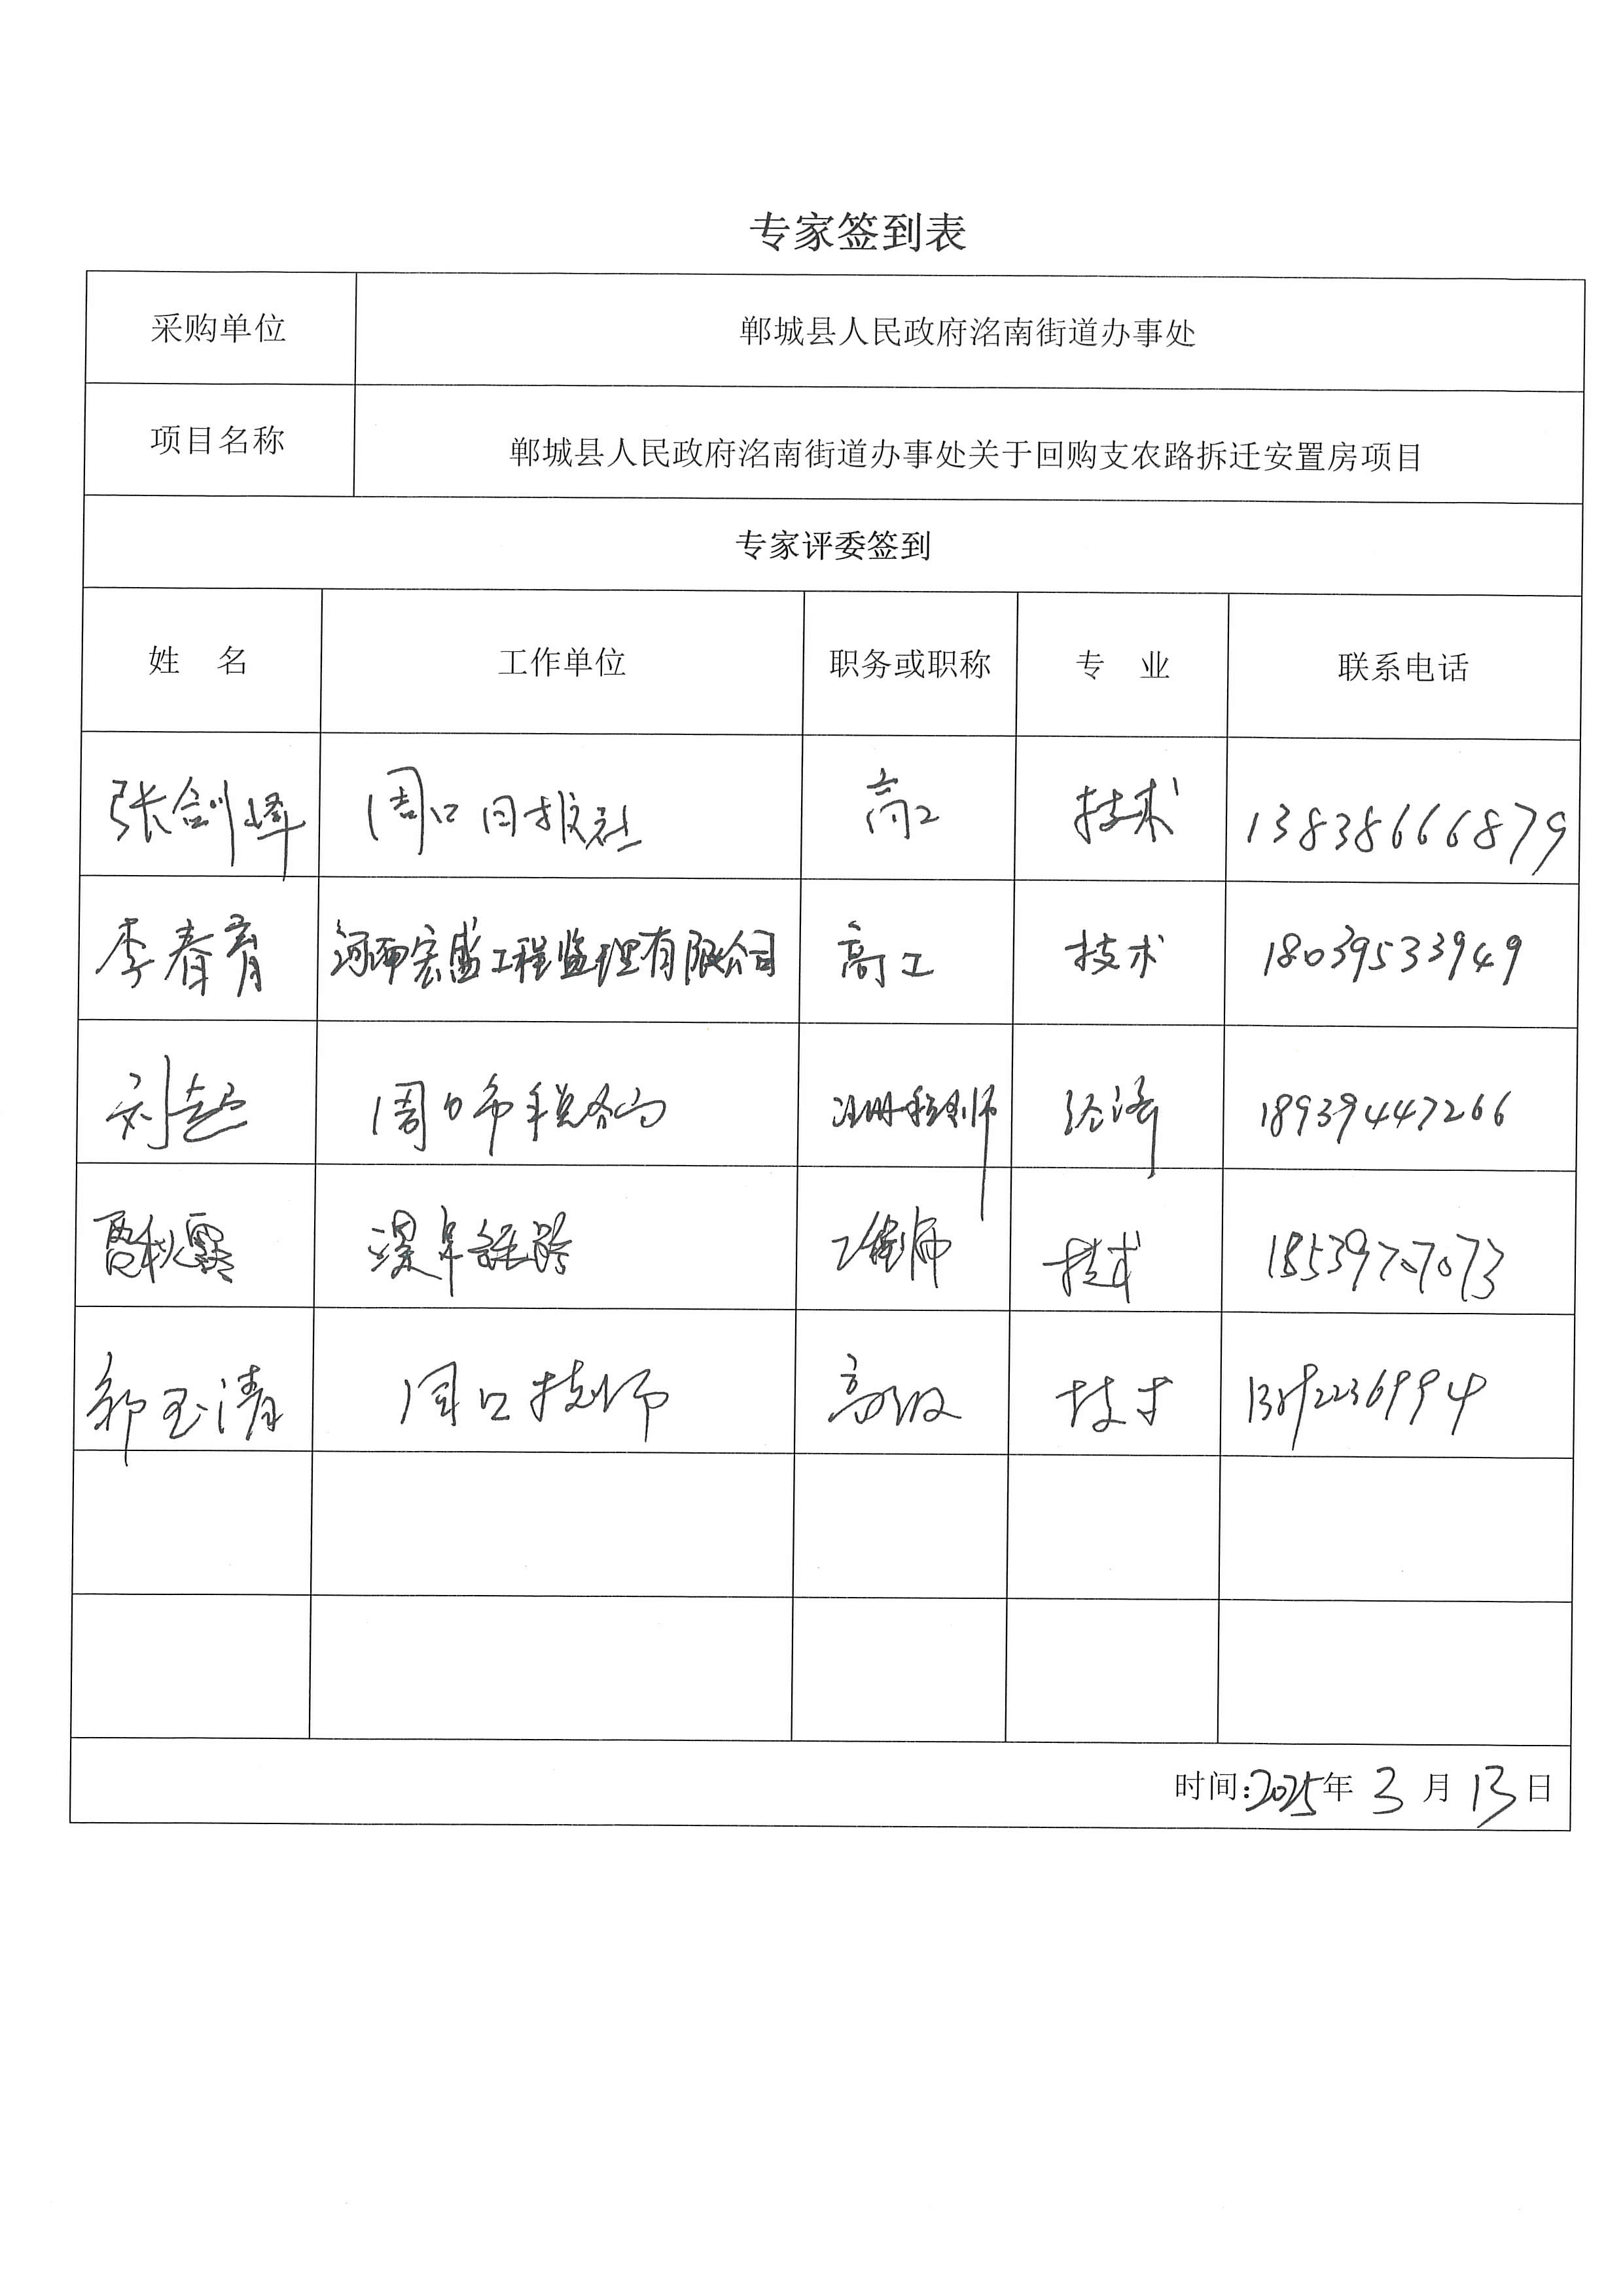 专家签到表
采购单位 郸城县人民政府洺南街道办事处
项目名称 郸城县人民政府洺南街道办事处关于回购支农路拆迁安置房项目
专家评委签到
姓 名 工作单位 职务或职称 专 业 联系电话
张剑峰 周口日报社 高工 技术 13838666879
李春育 河南宏盛工程监理有限公司 高工 技术 18039533949
刘超 周口市税务局 注册税务师 经济 18939447266
贾秋露 漯阜铁路 工程师 技术 18539707073
郭玉清 周口技师 高级 技术
时间:2025年 3 月 13 日